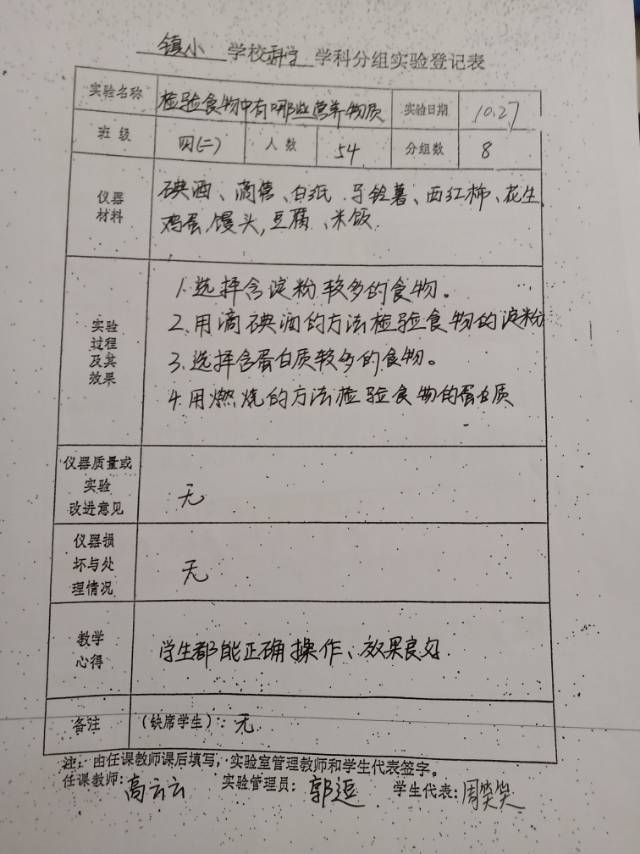 镇小 学校科学 学科分组实验登记表
实验名称 检验食物中有哪些营养物质 实验日期 10.27
班级 四(二) 人数 54 分组数 8
仪器材料 碘酒、滴管、白纸、马铃薯、西红柿、花生
鸡蛋、馒头,豆腐、米饭
实验过程及其效果 1.选择含淀粉较多的食物。
2.用滴碘酒的方法检验食物的淀粉
3.选择含蛋白质较多的食物。
4.用燃烧的方法检验食物的蛋白质
仪器质量或实验改进意见 无
仪器损坏与处理情况 无
教学心得 学生都能正确操作、效果良好.
备注 (缺席学生):无
注:由任课教师课后填写,实验室管理教师和学生代表签字。
任课教师:高云云 实验管理员:郭逗 学生代表:周笑笑